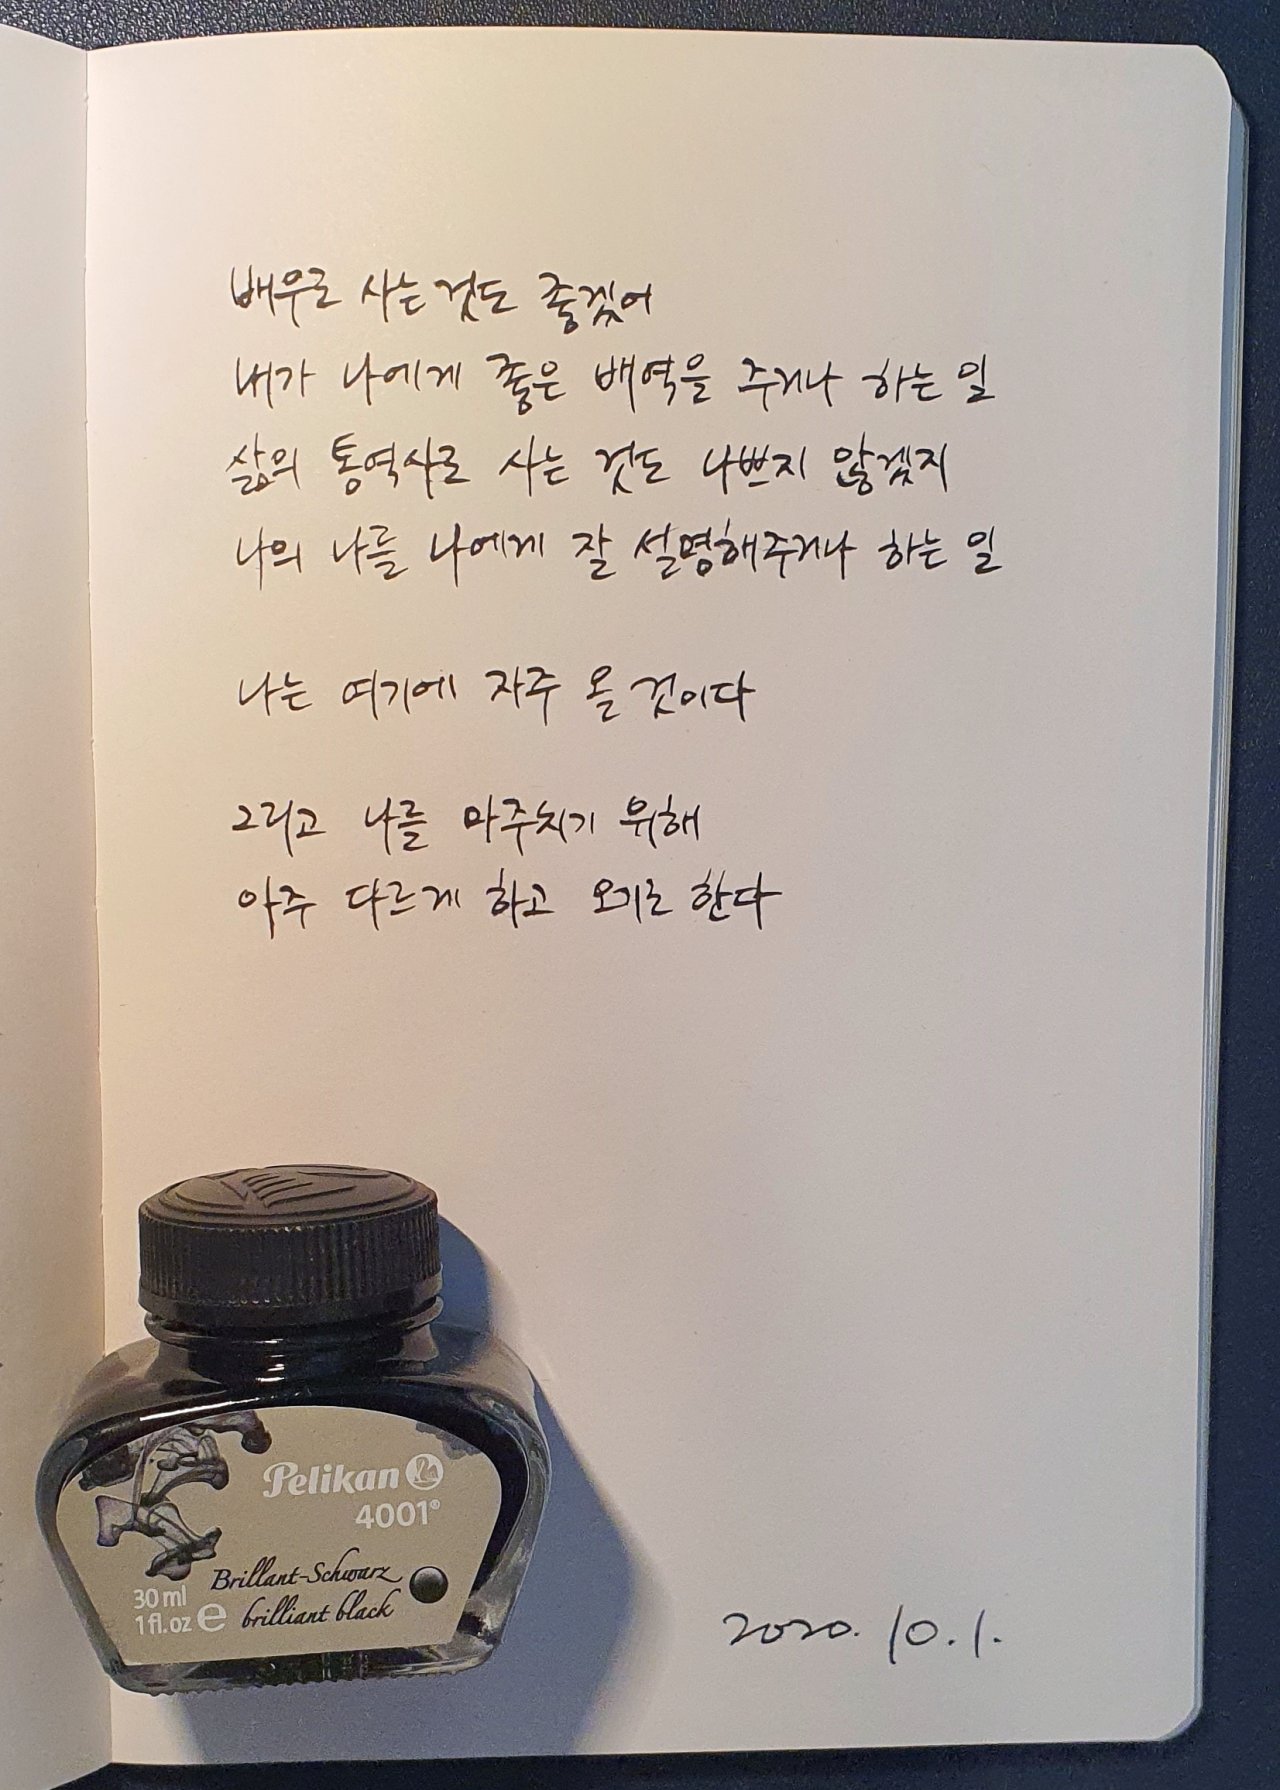 배우로 사는 것도 좋겠어
내가 나에게 좋은 배역을 주거나 하는 일
삶의 통역사로 사는 것도 나쁘지 않겠지
나의 나를 나에게 잘 설명해주거나 하는 일
나는 여기에 자주 올 것이다
그리고 나를 마주치기 위해
아주 다르게 하고 오기로 한다
Pelikan
4001®
Brillant-Schwarz
brilliant black
30 ml
1 fl.oz e
2020. 10. 1.